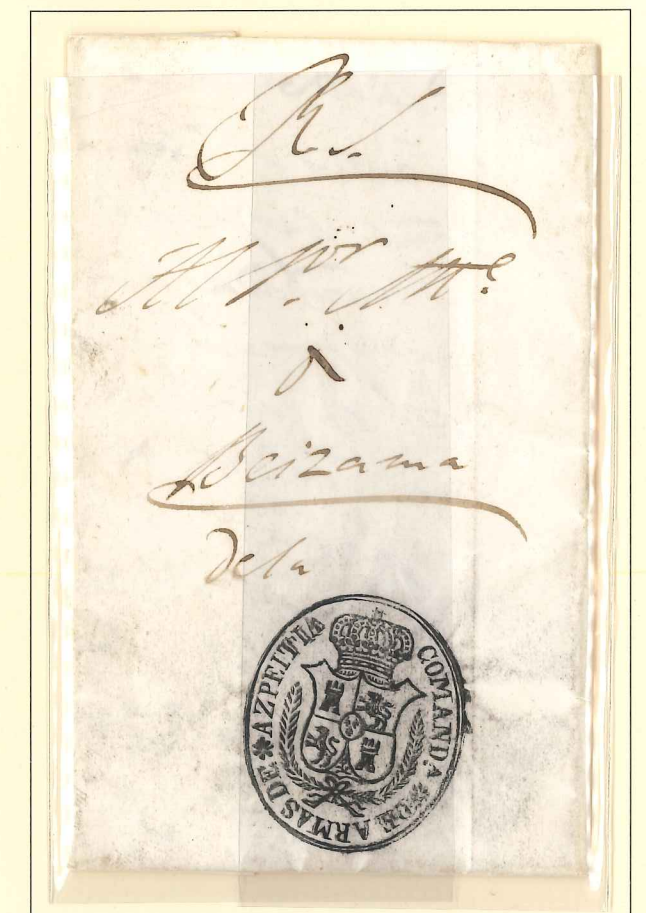 Al Sor. Al.e
Beizama
de la
COMAND.A DE ARMAS DE AZPEITIA